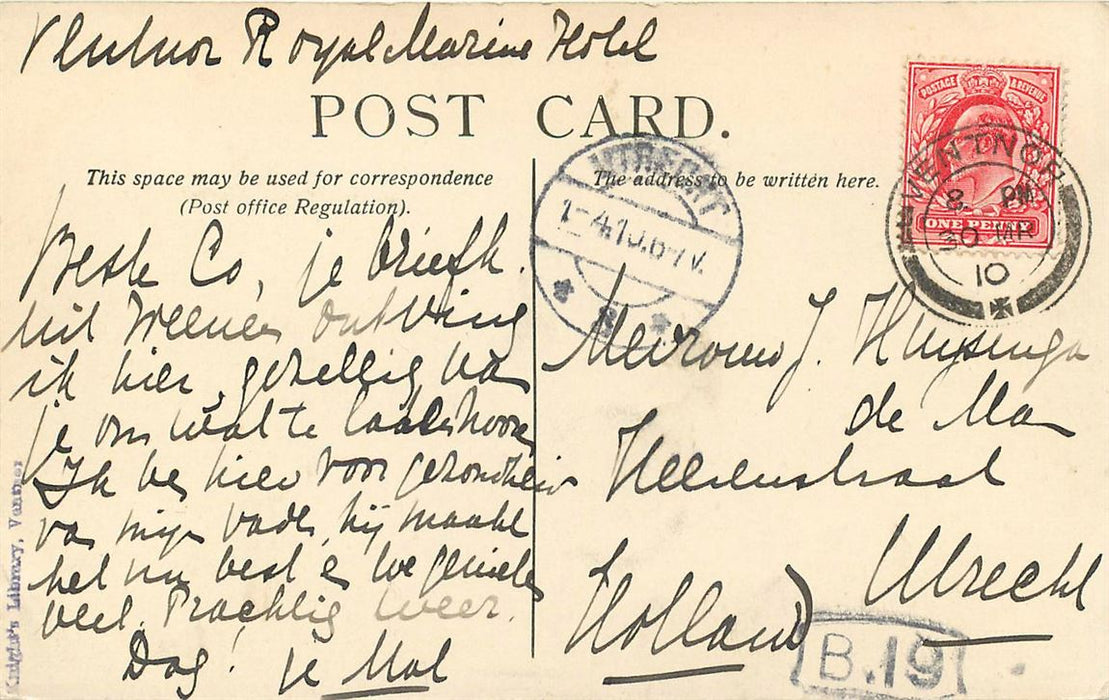 Ventnor Royal Marine Hotel
POST CARD.
This space may be used for correspondence
(Post office Regulation).
The address to be written here.
POSTAGE & REVENUE
ONE PENNY
VENTNOR
8 PM
30 MR
10
UTRECHT
1-4.10.6-7V.
8
Beste Co, je briefk.
uit Weenen ontving
ik hier, gezellig van
je om wat te laten hooren
Ik ben hier voor gezondheid
van mijn vader, hij maakt
het nu best en we genieten
veel. Prachtig weer.
Dag! je Mal
Mevrouw J. Huysinga
de Man
Heerenstraat
Utrecht
Holland
B.19
Knight's Library, Ventnor